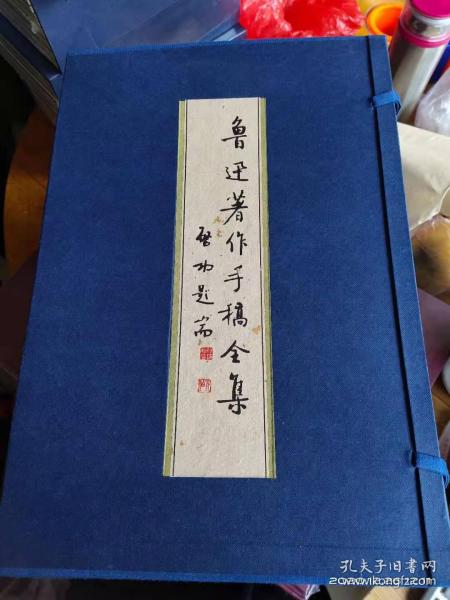 鲁迅著作手稿全集
启功题耑
孔夫子旧书网